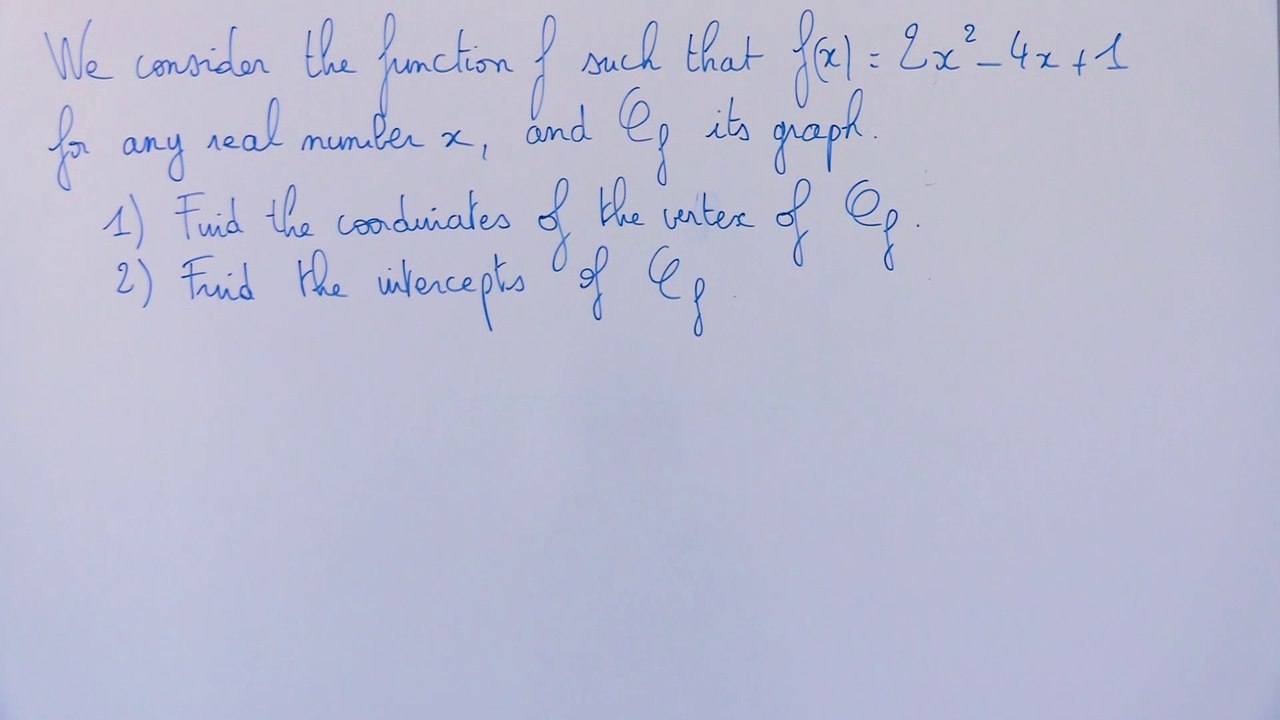 We consider the function f such that f(x) = 2x² - 4x + 1
for any real number x, and 𝒞f its graph.
1) Find the coordinates of the vertex of 𝒞f.
2) Find the intercepts of 𝒞f